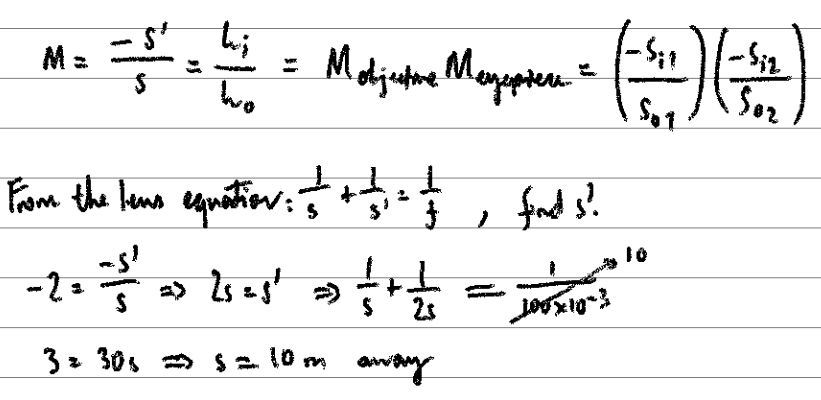 M = -s'/s = hi/ho = Mobjective Meyepiece = (-si1/so1)(-si2/so2)
From the lens equation: 1/s + 1/s' = 1/f , find s'.
-2 = -s'/s => 2s = s' => 1/s + 1/2s = 1/100×10^-3 10
3 = 30s => s = 10 m away